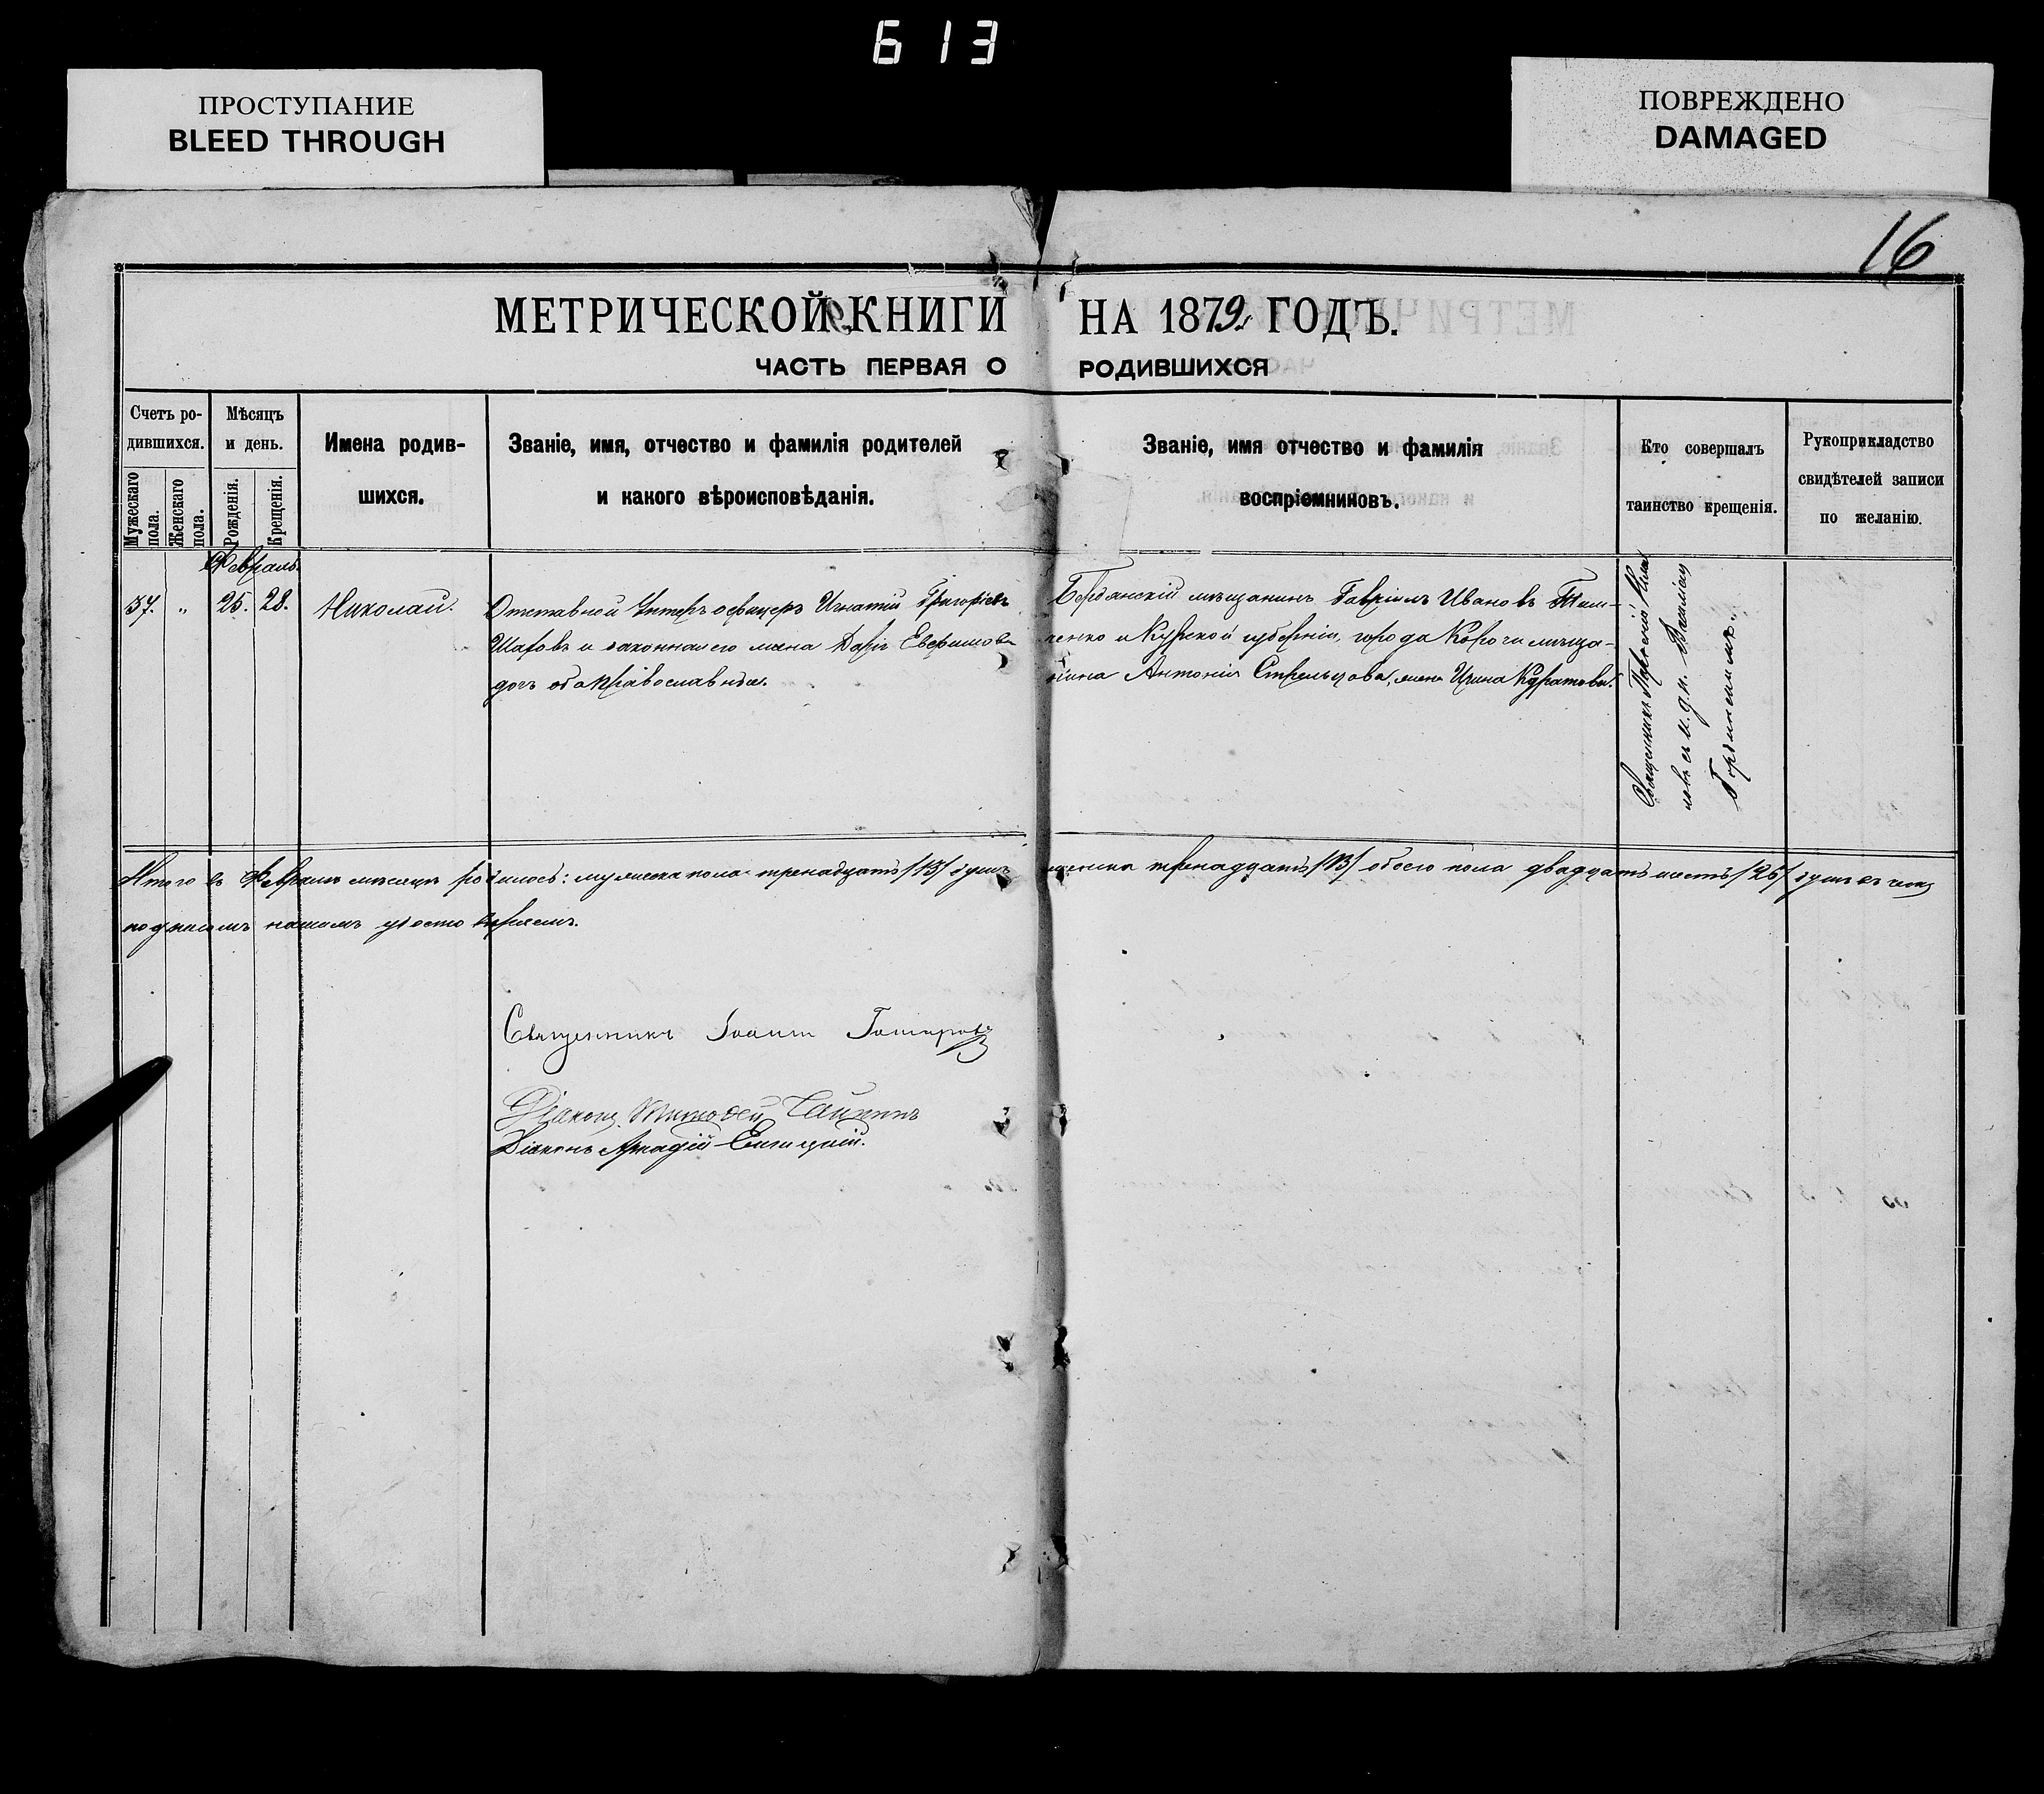 613
ПРОСТУПАНИЕ
BLEED THROUGH
ПОВРЕЖДЕНО
DAMAGED
16
МЕТРИЧЕСКОЙ КНИГИ НА 1879 ГОДЪ.
ЧАСТЬ ПЕРВАЯ О РОДИВШИХСЯ
Счетъ ро-
дившихся.
Мужескаго
пола.
Женскаго
пола.
Мѣсяцъ
и день.
Рожденія.
Крещенія.
Имена родив-
шихся.
Званіе, имя, отчество и фамилія родителей
и какого вѣроисповѣданія.
Званіе, имя отчество и фамилія
воспріемниковъ.
Кто совершалъ
таинство крещенія.
Рукоприкладство
свидѣтелей записи
по желанію.
Февраль
37. „ 25. 28. Николай.
Отставной Унтеръ офицеръ Игнатій Григорьевъ
Шаровъ и законная его жена Дарія
оба православные.
Бердянскій мѣщанинъ Гавріилъ Ивановъ Тим-
ченко и Курской губерніи, города Корочи мѣща-
нина Антонія Стрельцова, жена Ирина
Священникъ
съ и. д. п.
Итого въ Февралѣ мѣсяцѣ родилось: мужеска пола тринадцать /13/ душъ женска тринадцать /13/ обоего пола двадцать шесть /26/ душъ въ чемъ
подписомъ нашимъ удостовѣряемъ.
Священникъ Іоаннъ
Діаконъ Тимофей
Діаконъ Аркадій